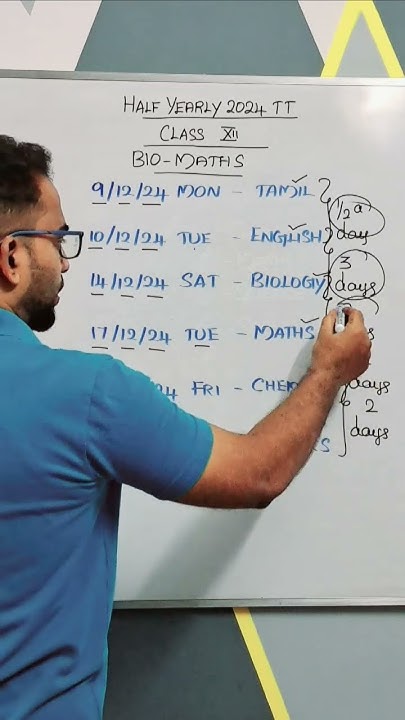 HALF YEARLY 2024 TT
CLASS XII
BIO-MATHS
9/12/24 MON - TAMIL
1/2 a day
10/12/24 TUE - ENGLISH
3 days
14/12/24 SAT - BIOLOGY
17/12/24 TUE - MATHS
24 FRI - CHE
days
2 days
S